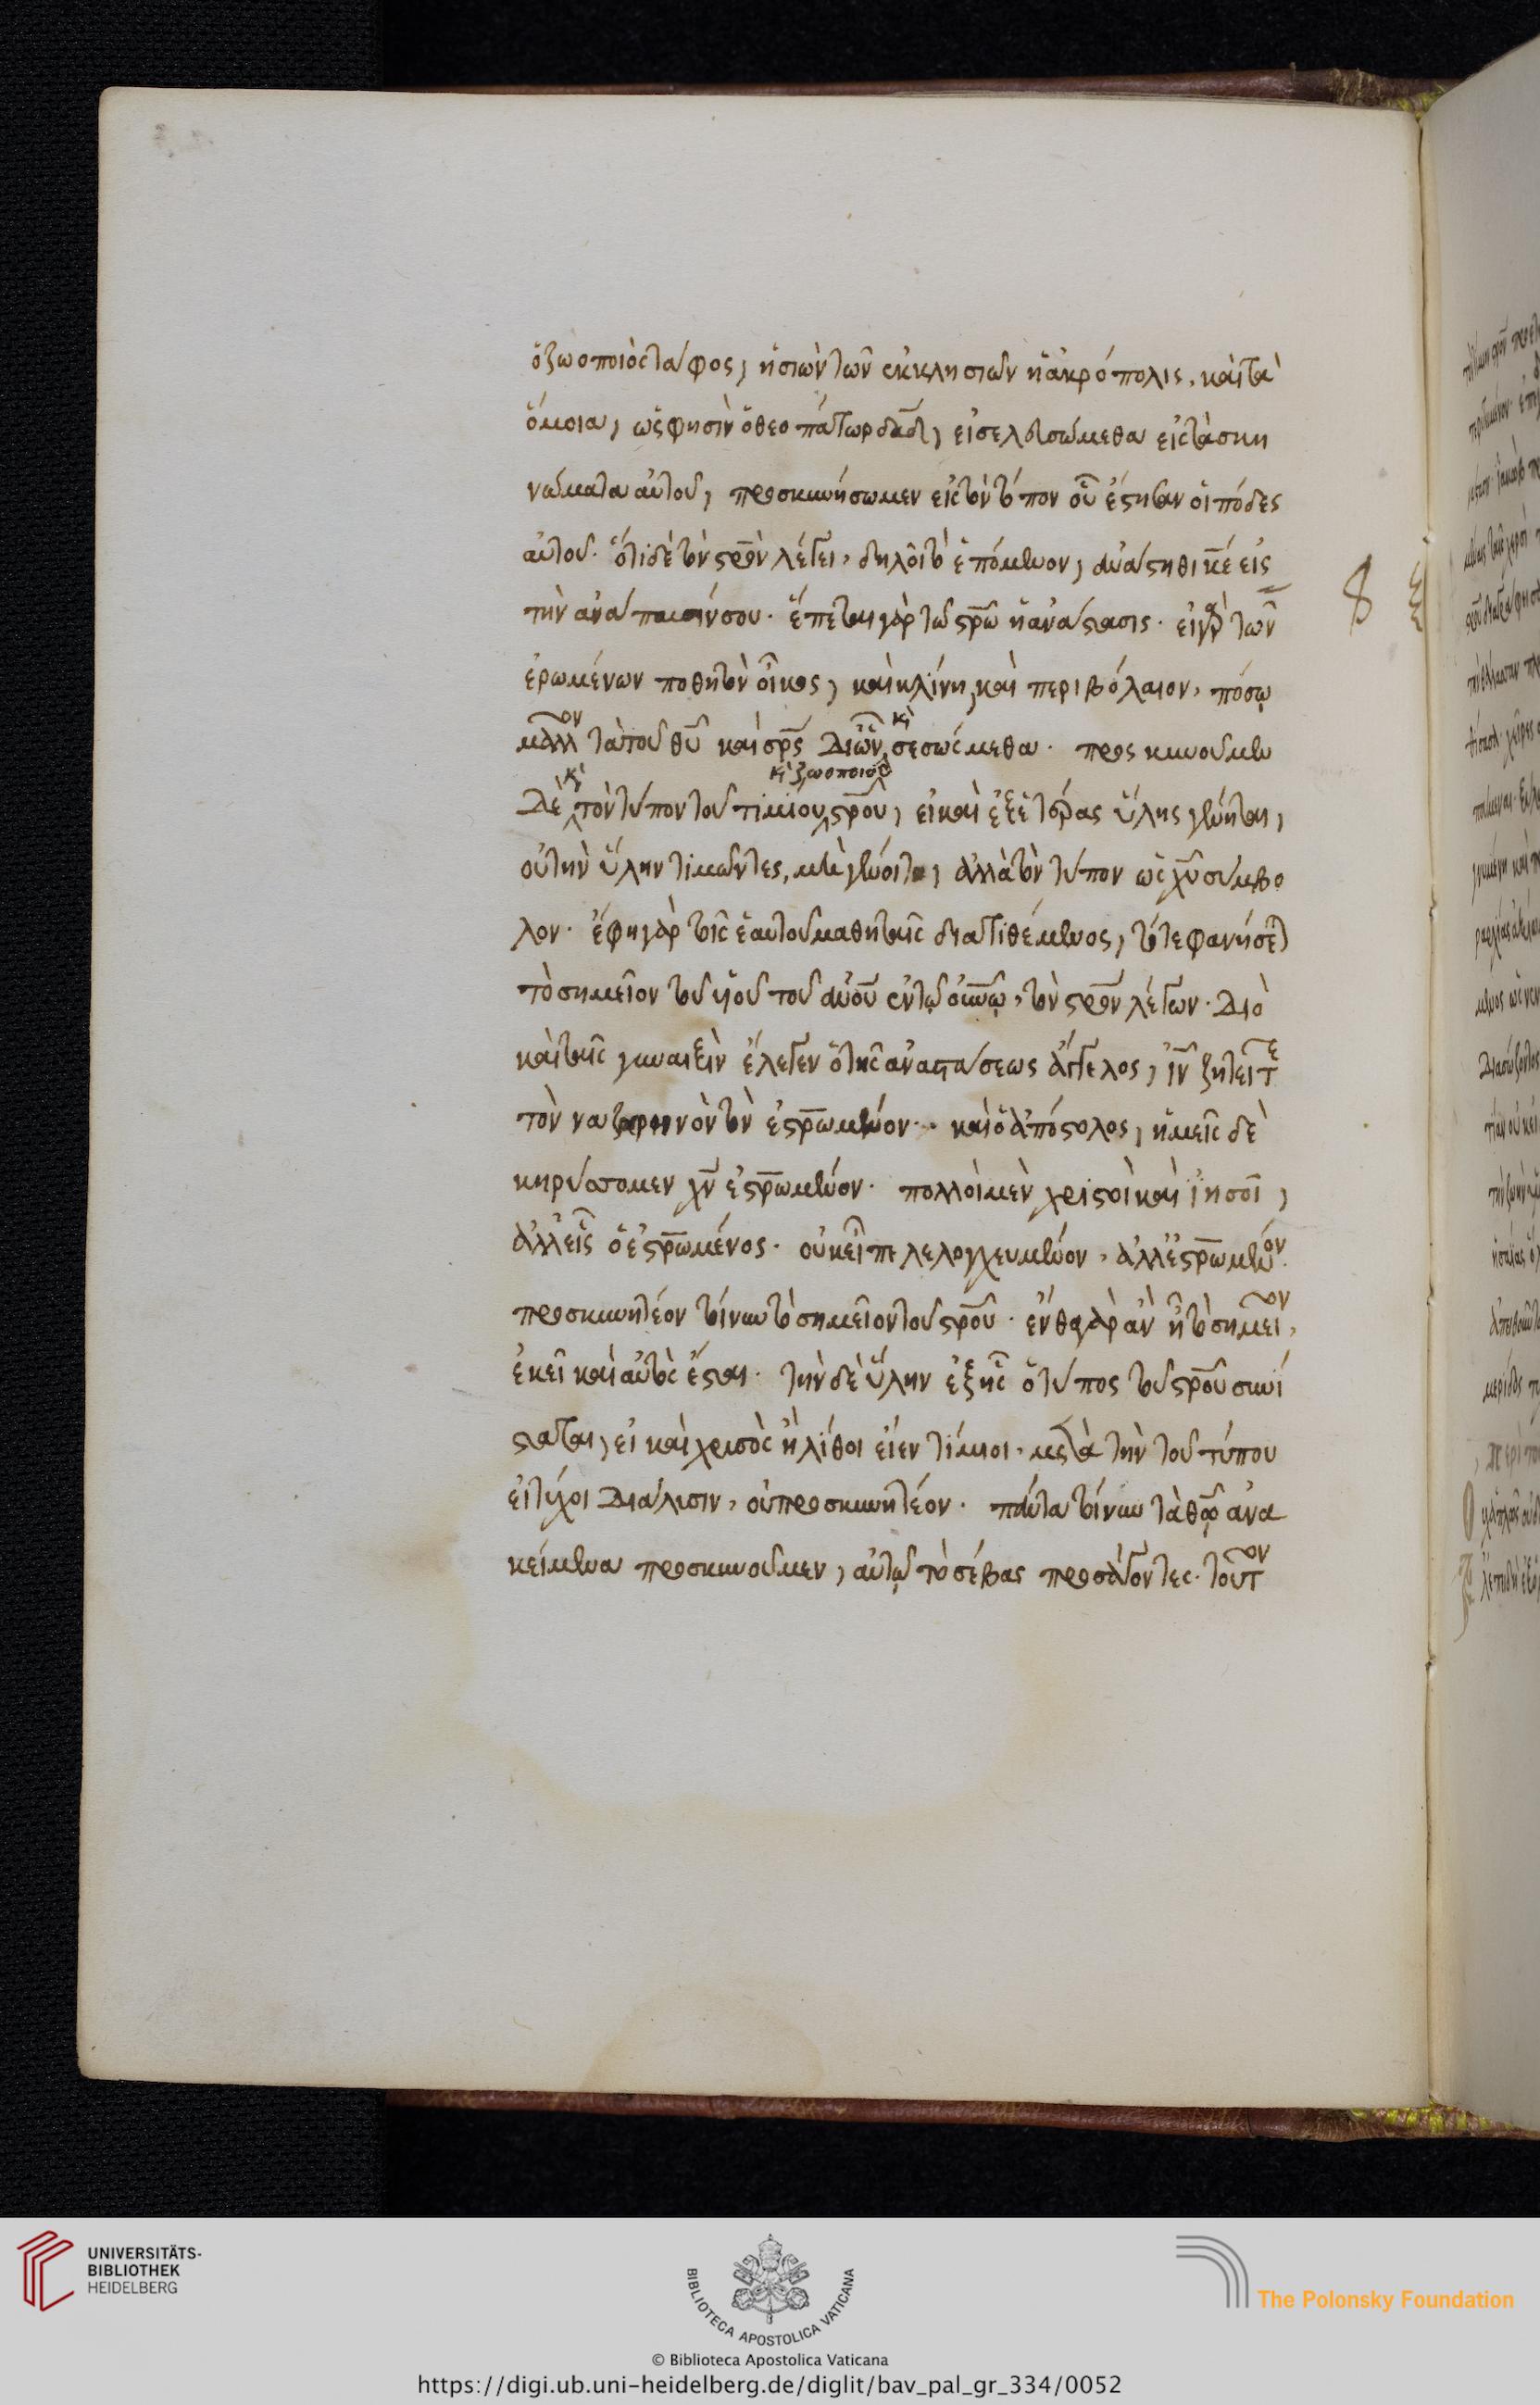 ὁ ζωοποιὸς τάφος, ἡ σιὼν τῶν ἐκκλησιῶν ἡ ἀκρόπολις, καὶ τὰ
ὅμοια, ὥς φησὶν ὁ θεοπάτωρ δᾱδ, εἰσελευσώμεθα εἰς τὰ σκη
νώματα αὐτοῦ, προσκυνήσωμεν εἰς τὸν τόπον οὗ ἔστησαν οἱ πόδες
αὐτοῦ. ὅτι δὲ τὸν σρὸν λέγει, δηλοῖ τὸ ἑπόμενον, ἀνάστηθι κ̅ε εἰς
τὴν ἀνάπαυσίν σου. ἕπεται γὰρ τῷ σρῶ ἡ ἀνάστασις. εἰ γὰρ τῶν
ἐρωμένων ποθητὸν οἶκος, καὶ κλίνη, καὶ περιβόλαιον, πόσῳ
μᾶλλον τὰ τοῦ θυ καὶ σρς δι' ὧν κὶ σεσώσμεθα. προσκυνοῦμεν
δὲ κὶ τὸν τύπον τοῦ τιμίου κὶ ζωοποιοῦ σροῦ, εἰ καὶ ἐξ ἑτέρας ὕλης γένηται,
οὐ τὴν ὕλην τιμῶντες, μὴ γένοιτο, ἀλλὰ τὸν τύπον ὡς χυ σύμβο
λον. ἔφη γὰρ τοῖς ἑαυτοῦ μαθηταῖς διατιθέμενος, τότε φανήσεται
τὸ σημεῖον τοῦ υἱοῦ τοῦ ἀνου ἐν τῷ οὐνῷ, τὸν σρὸν λέγων. διὸ
καὶ ταῖς γυναιξὶν ἔλεγεν ὁ τῆς ἀναστάσεως ἄγγελος, ἰν ζητεῖτε
τὸν ναζαρηνὸν τὸν ἐσρωμένον. καὶ ὁ ἀπόστολος, ἡμεῖς δὲ
κηρύσσομεν χν ἐσρωμένον. πολλοὶ μὲν χριστοὶ καὶ ἰησοῖ,
ἀλλ' εἷς ὁ ἐσρωμένος. οὐκ εἶπε λελογχευμένον, ἀλλ' ἐσρωμένον.
προσκυνητέον τοίνυν τὸ σημεῖον τοῦ σροῦ. ἔνθα γὰρ ἂν ἦ τὸ σημεῖον,
ἐκεῖ καὶ αὐτὸς ἔσται. τὴν δὲ ὕλην ἐξ ἧς ὁ τύπος τοῦ σροῦ συνί
σταται, εἰ καὶ χρυσὸς ἢ λίθοι εἶεν τίμιοι, μετὰ τὴν τοῦ τύπου
εἰ τύχοι διάλυσιν, οὐ προσκυνητέον. πάντα τοίνυν τὰ θῶ ἀνα
κείμενα προσκυνοῦμεν, αὐτῷ τὸ σέβας προσάγοντες. τοῦτον
UNIVERSITÄTS-
BIBLIOTHEK
HEIDELBERG
BIBLIOTECA APOSTOLICA VATICANA
The Polonsky Foundation
© Biblioteca Apostolica Vaticana
https://digi.ub.uni-heidelberg.de/diglit/bav_pal_gr_334/0052